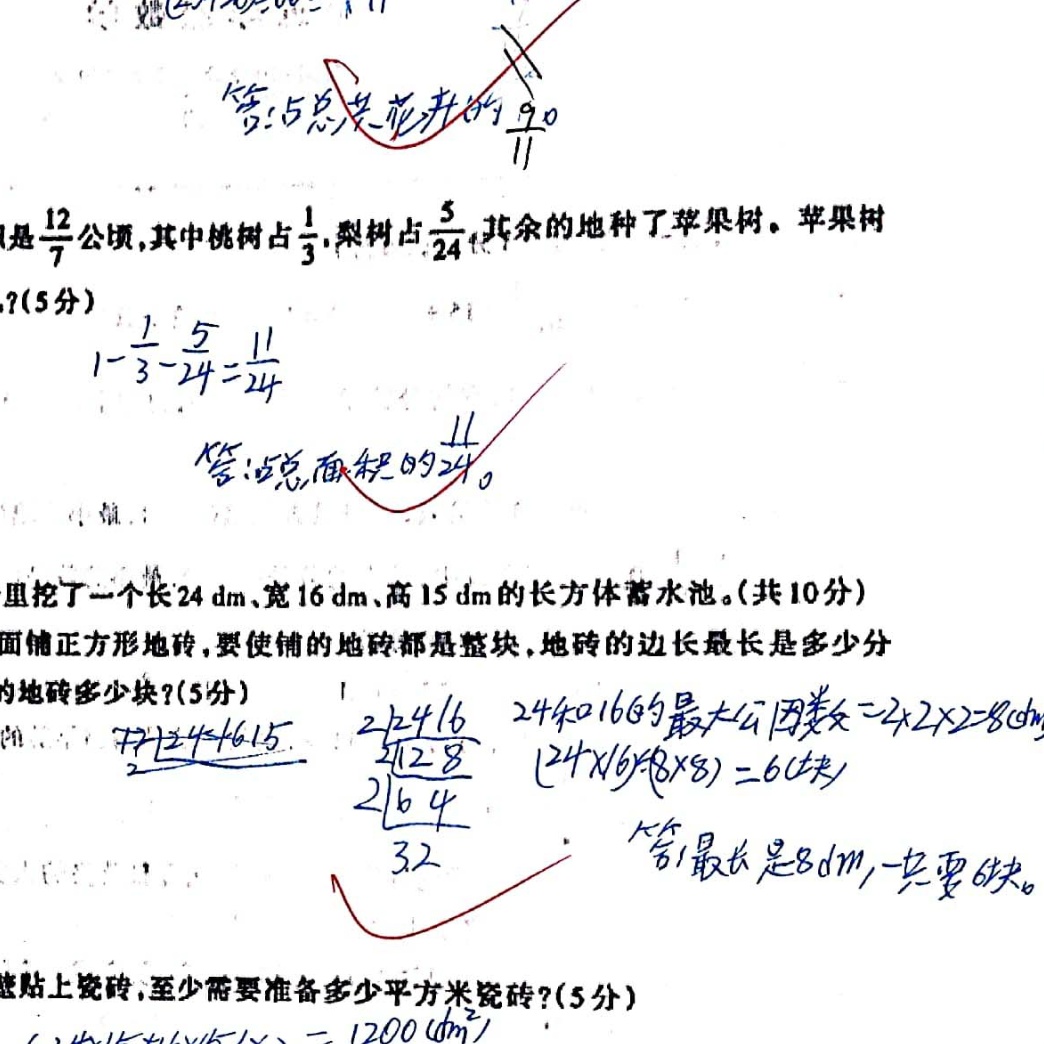 答:占总共花卉的9/11。
是12/7公顷,其中桃树占1/3,梨树占5/24,其余的地种了苹果树。苹果树
?(5分)
1-1/3-5/24=11/24
答:占总面积的11/24。
里挖了一个长24 dm、宽16 dm、高15 dm的长方体蓄水池。(共10分)
面铺正方形地砖,要使铺的地砖都是整块,地砖的边长最长是多少分
的地砖多少块?(5分)
2 24 16 24和16的最大公因数=2×2×2=8(dm)
2 12 8 (24×16)÷(8×8)=6(块)
2 6 4
3 2 答:最长是8dm,一共要6块。
贴上瓷砖,至少需要准备多少平方米瓷砖?(5分)
=1200(dm²)